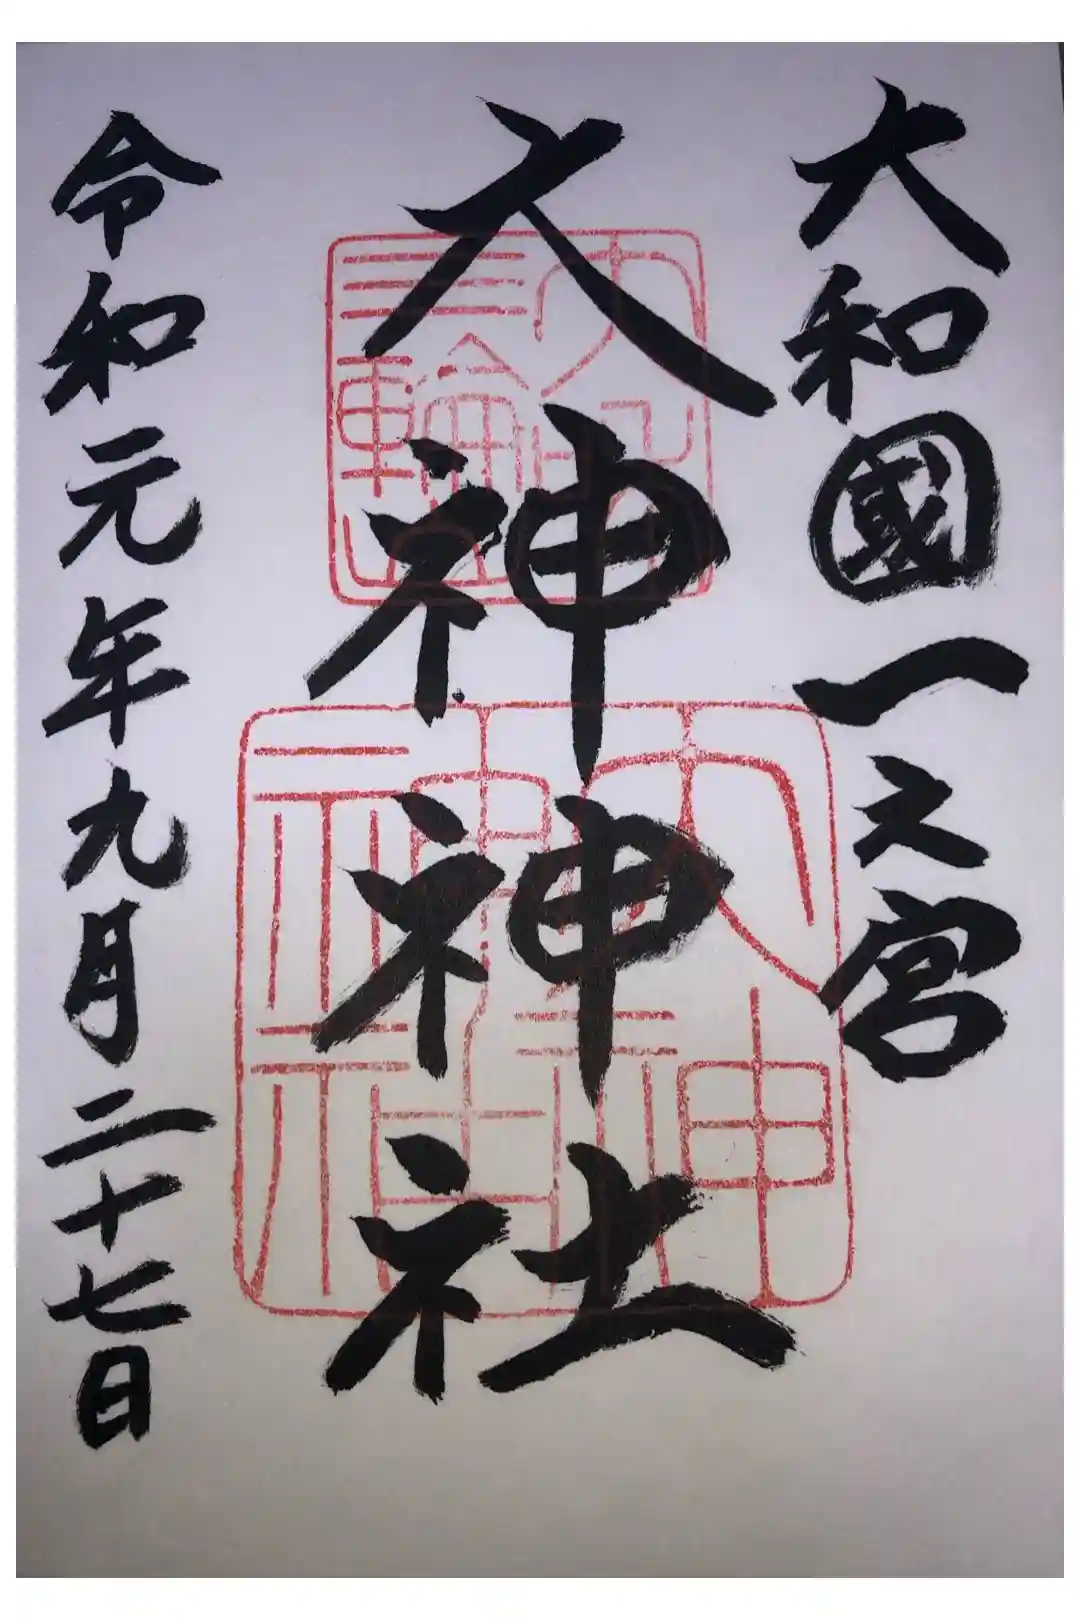 大和國一之宮
大神神社
大神
神社
令和元年九月二十七日